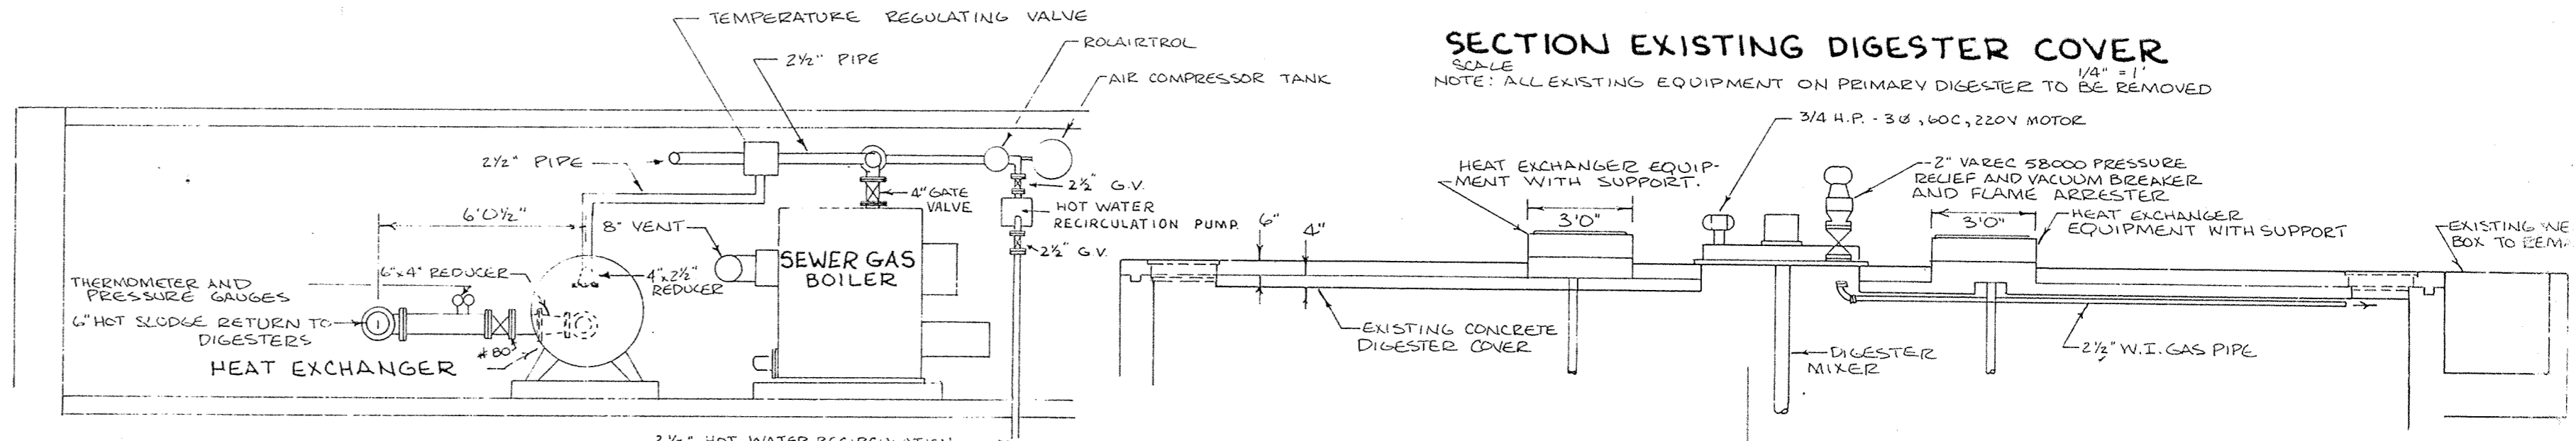 TEMPERATURE REGULATING VALVE
ROLAIRTROL
2½" PIPE
AIR COMPRESSOR TANK
2½" PIPE
4" GATE
VALVE
2½" G.V.
HOT WATER
RECIRCULATION PUMP
2½" G.V.
6'0½"
8" VENT
SEWER GAS
BOILER
6"x4" REDUCER
4"x2½"
REDUCER
THERMOMETER AND
PRESSURE GAUGES
6" HOT SLUDGE RETURN TO
DIGESTERS
#80
HEAT EXCHANGER
2½" HOT WATER RECIRCULATION
SECTION EXISTING DIGESTER COVER
SCALE
1/4" = 1'
NOTE: ALL EXISTING EQUIPMENT ON PRIMARY DIGESTER TO BE REMOVED
3/4 H.P. - 3Ø, 60C, 220V MOTOR
HEAT EXCHANGER EQUIP-
MENT WITH SUPPORT.
2" VAREC 58000 PRESSURE
RELIEF AND VACUUM BREAKER
AND FLAME ARRESTER
3'0"
3'0"
HEAT EXCHANGER
EQUIPMENT WITH SUPPORT
6"
4"
EXISTING WE
BOX TO REMA
EXISTING CONCRETE
DIGESTER COVER
DIGESTER
MIXER
2½" W.I. GAS PIPE